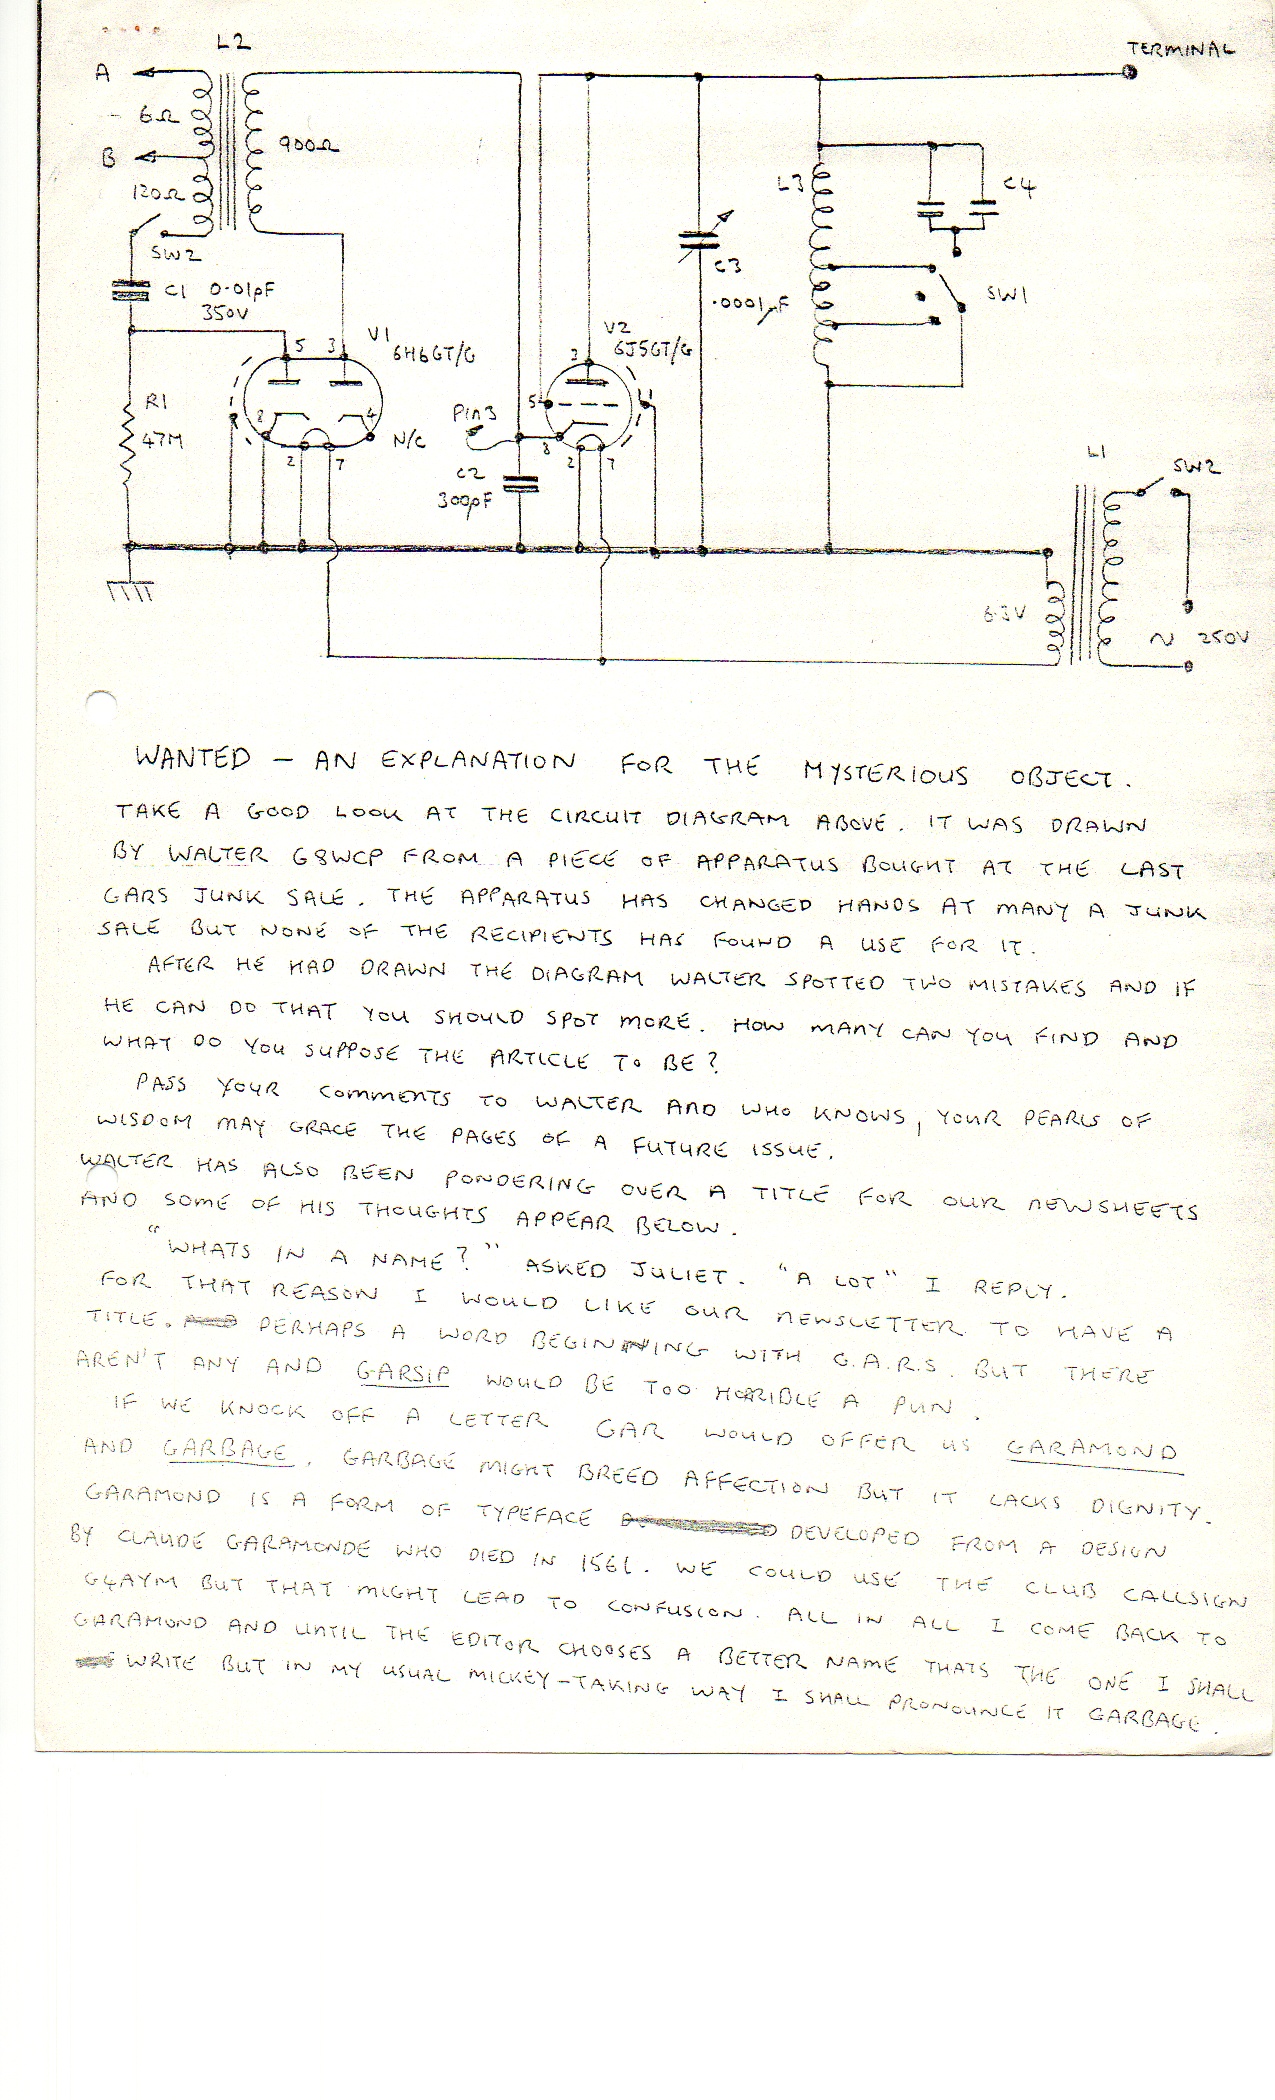 L2
TERMINAL
A
6Ω
B
900Ω
120Ω
L3
C4
SW2
C1 0.01pF
350V
C3
.0001µF
SW1
V1
6H6GT/G
V2
6J5GT/G
5 3
3
R1
47M
8
4
N/C
Pin3
5
1
2
7
8
2
7
C2
300pF
L1
SW2
6.3V
~ 250V
WANTED — AN EXPLANATION FOR THE MYSTERIOUS OBJECT.
TAKE A GOOD LOOK AT THE CIRCUIT DIAGRAM ABOVE. IT WAS DRAWN
BY WALTER G8WCP FROM A PIECE OF APPARATUS BOUGHT AT THE LAST
GARS JUNK SALE. THE APPARATUS HAS CHANGED HANDS AT MANY A JUNK
SALE BUT NONE OF THE RECIPIENTS HAS FOUND A USE FOR IT.
AFTER HE HAD DRAWN THE DIAGRAM WALTER SPOTTED TWO MISTAKES AND IF
HE CAN DO THAT YOU SHOULD SPOT MORE. HOW MANY CAN YOU FIND AND
WHAT DO YOU SUPPOSE THE ARTICLE TO BE?
PASS YOUR COMMENTS TO WALTER AND WHO KNOWS, YOUR PEARLS OF
WISDOM MAY GRACE THE PAGES OF A FUTURE ISSUE.
WALTER HAS ALSO BEEN PONDERING OVER A TITLE FOR OUR NEWSHEETS
AND SOME OF HIS THOUGHTS APPEAR BELOW.
"WHATS IN A NAME?" ASKED JULIET. "A LOT" I REPLY.
FOR THAT REASON I WOULD LIKE OUR NEWSLETTER TO HAVE A
TITLE. PERHAPS A WORD BEGINNING WITH G.A.R.S. BUT THERE
AREN'T ANY AND GARSIP WOULD BE TOO HORRIBLE A PUN.
IF WE KNOCK OFF A LETTER GAR WOULD OFFER US GARAMOND
AND GARBAGE. GARBAGE MIGHT BREED AFFECTION BUT IT LACKS DIGNITY.
GARAMOND IS A FORM OF TYPEFACE DEVELOPED FROM A DESIGN
BY CLAUDE GARAMONDE WHO DIED IN 1561. WE COULD USE THE CLUB CALLSIGN
G4AYM BUT THAT MIGHT LEAD TO CONFUSION. ALL IN ALL I COME BACK TO
GARAMOND AND UNTIL THE EDITOR CHOOSES A BETTER NAME THATS THE ONE I SHALL
WRITE BUT IN MY USUAL MICKEY-TAKING WAY I SHALL PRONOUNCE IT GARBAGE.